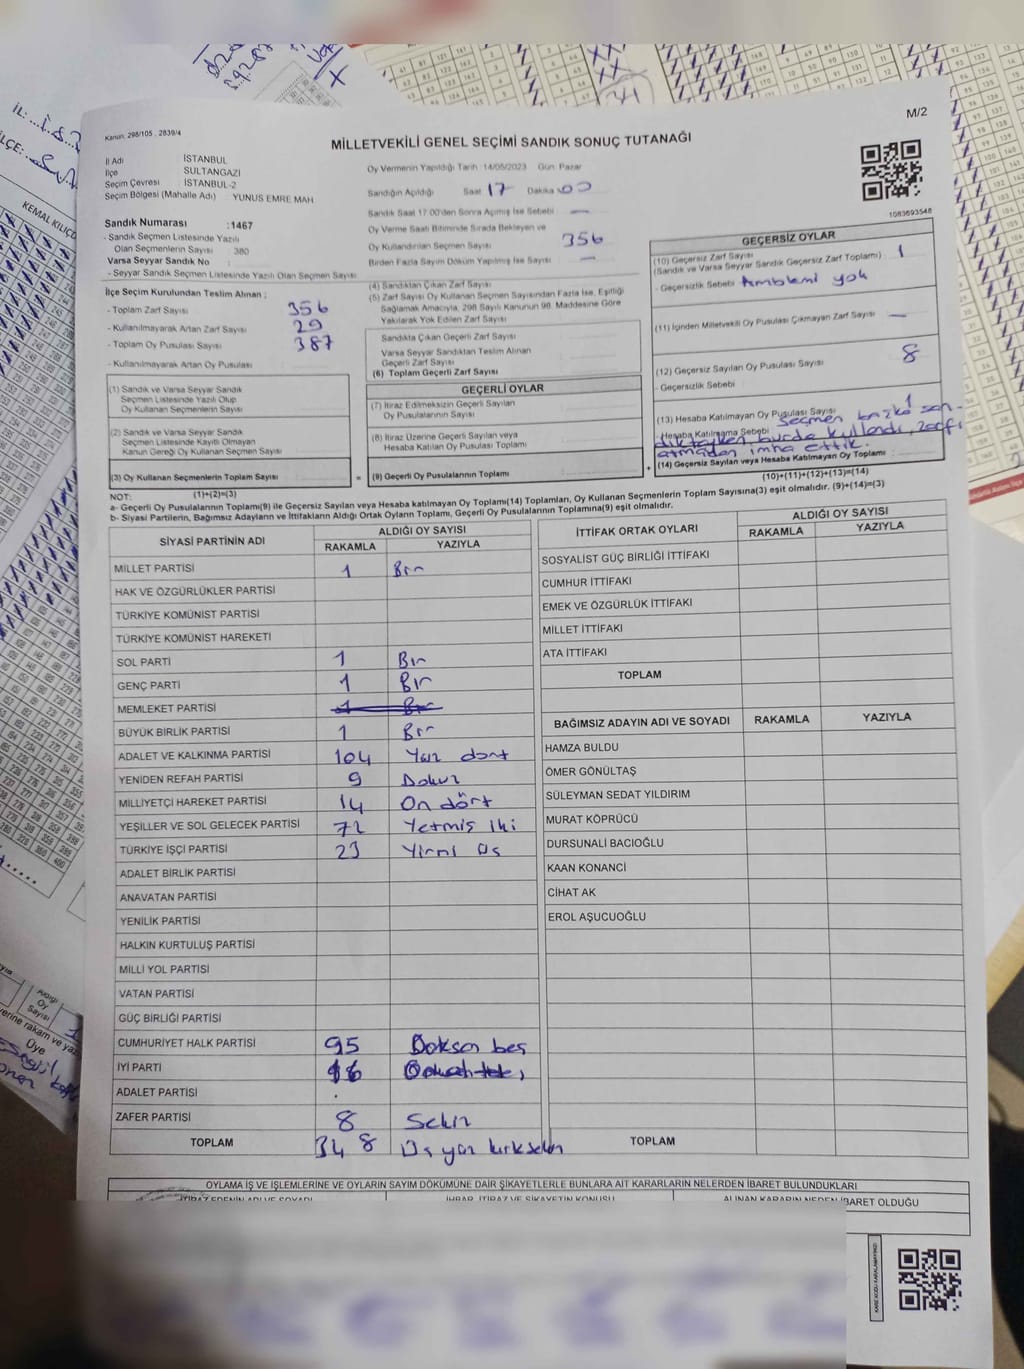 M/2
Kanun: 298/105 , 2839/4
MİLLETVEKİLİ GENEL SEÇİMİ SANDIK SONUÇ TUTANAĞI
İl Adı İSTANBUL
İlçe SULTANGAZİ
Seçim Çevresi İSTANBUL-2
Seçim Bölgesi (Mahalle Adı) YUNUS EMRE MAH
Oy Vermenin Yapıldığı Tarih :14/05/2023 Gün: Pazar
Sandığın Açıldığı Saat 17 Dakika 00
Sandık Saat 17:00'den Sonra Açılmış İse Sebebi —
Oy Verme Saati Bitiminde Sırada Bekleyen ve
Oy Kullandırılan Seçmen Sayısı 356
Birden Fazla Sayım Döküm Yapılmış İse Sayısı —
1083693548
Sandık Numarası :1467
- Sandık Seçmen Listesinde Yazılı
Olan Seçmenlerin Sayısı : 380
Varsa Seyyar Sandık No :
- Seyyar Sandık Seçmen Listesinde Yazılı Olan Seçmen Sayısı:
İlçe Seçim Kurulundan Teslim Alınan ;
- Toplam Zarf Sayısı 356
- Kullanılmayarak Artan Zarf Sayısı 29
- Toplam Oy Pusulası Sayısı 387
- Kullanılmayarak Artan Oy Pusulası
(1) Sandık ve Varsa Seyyar Sandık
Seçmen Listesinde Yazılı Olup
Oy Kullanan Seçmenlerin Sayısı
(2) Sandık ve Varsa Seyyar Sandık
Seçmen Listesinde Kayıtlı Olmayan
Kanun Gereği Oy Kullanan Seçmen Sayısı
(3) Oy Kullanan Seçmenlerin Toplam Sayısı
(1)+(2)=(3)
(4) Sandıktan Çıkan Zarf Sayısı
(5) Zarf Sayısı Oy Kullanan Seçmen Sayısından Fazla İse, Eşitliği
Sağlamak Amacıyla, 298 Sayılı Kanunun 98. Maddesine Göre
Yakılarak Yok Edilen Zarf Sayısı
Sandıkta Çıkan Geçerli Zarf Sayısı
Varsa Seyyar Sandıktan Teslim Alınan
Geçerli Zarf Sayısı
(6) Toplam Geçerli Zarf Sayısı
GEÇERLİ OYLAR
(7) İtiraz Edilmeksizin Geçerli Sayılan
Oy Pusulalarının Sayısı
(8) İtiraz Üzerine Geçerli Sayılan veya
Hesaba Katılan Oy Pusulası Toplamı
(9) Geçerli Oy Pusulalarının Toplamı
GEÇERSİZ OYLAR
(10) Geçersiz Zarf Sayısı
(Sandık ve Varsa Seyyar Sandık Geçersiz Zarf Toplamı) 1
- Geçersizlik Sebebi Amblemi yok
(11) İçinden Milletvekili Oy Pusulası Çıkmayan Zarf Sayısı —
(12) Geçersiz Sayılan Oy Pusulası Sayısı 8
- Geçersizlik Sebebi
(13) Hesaba Katılmayan Oy Pusulası Sayısı 1
- Hesaba Katılmama Sebebi Seçmen başka san-
dıktayken burda kullandı, zarfı
atmadan imha ettik.
(14) Geçersiz Sayılan veya Hesaba Katılmayan Oy Toplamı
(10)+(11)+(12)+(13)=(14)
NOT:
a- Geçerli Oy Pusulalarının Toplamı(9) ile Geçersiz Sayılan veya Hesaba katılmayan Oy Toplamı(14) Toplamları, Oy Kullanan Seçmenlerin Toplam Sayısına(3) eşit olmalıdır. (9)+(14)=(3)
b- Siyasi Partilerin, Bağımsız Adayların ve İttifakların Aldığı Ortak Oyların Toplamı, Geçerli Oy Pusulalarının Toplamına(9) eşit olmalıdır.
SİYASİ PARTİNİN ADI ALDIĞI OY SAYISI
RAKAMLA YAZIYLA
MİLLET PARTİSİ 1 Bir
HAK VE ÖZGÜRLÜKLER PARTİSİ
TÜRKİYE KOMÜNİST PARTİSİ
TÜRKİYE KOMÜNİST HAREKETİ
SOL PARTİ 1 Bir
GENÇ PARTİ 1 Bir
MEMLEKET PARTİSİ 1 Bir
BÜYÜK BİRLİK PARTİSİ 1 Bir
ADALET VE KALKINMA PARTİSİ 104 Yüz dört
YENİDEN REFAH PARTİSİ 9 Dokuz
MİLLİYETÇİ HAREKET PARTİSİ 14 On dört
YEŞİLLER VE SOL GELECEK PARTİSİ 72 Yetmiş iki
TÜRKİYE İŞÇİ PARTİSİ 23 Yirmi üç
ADALET BİRLİK PARTİSİ
ANAVATAN PARTİSİ
YENİLİK PARTİSİ
HALKIN KURTULUŞ PARTİSİ
MİLLİ YOL PARTİSİ
VATAN PARTİSİ
GÜÇ BİRLİĞİ PARTİSİ
CUMHURİYET HALK PARTİSİ 95 Doksan beş
İYİ PARTİ
ADALET PARTİSİ
ZAFER PARTİSİ 8 Sekiz
TOPLAM 348 Üç yüz kırk sekiz
İTTİFAK ORTAK OYLARI ALDIĞI OY SAYISI
RAKAMLA YAZIYLA
SOSYALİST GÜÇ BİRLİĞİ İTTİFAKI
CUMHUR İTTİFAKI
EMEK VE ÖZGÜRLÜK İTTİFAKI
MİLLET İTTİFAKI
ATA İTTİFAKI
TOPLAM
BAĞIMSIZ ADAYIN ADI VE SOYADI RAKAMLA YAZIYLA
HAMZA BULDU
ÖMER GÖNÜLTAŞ
SÜLEYMAN SEDAT YILDIRIM
MURAT KÖPRÜCÜ
DURSUNALİ BACIOĞLU
KAAN KONANCİ
CİHAT AK
EROL AŞUCUOĞLU
TOPLAM
OYLAMA İŞ VE İŞLEMLERİNE VE OYLARIN SAYIM DÖKÜMÜNE DAİR ŞİKAYETLERLE BUNLARA AİT KARARLARIN NELERDEN İBARET BULUNDUKLARI
İTİRAZ EDENİN ADI VE SOYADI İHBAR, İTİRAZ VE ŞİKAYETİN KONUSU ALINAN KARARIN NEDEN İBARET OLDUĞU
KARE KODU KARALAMAYINIZ!